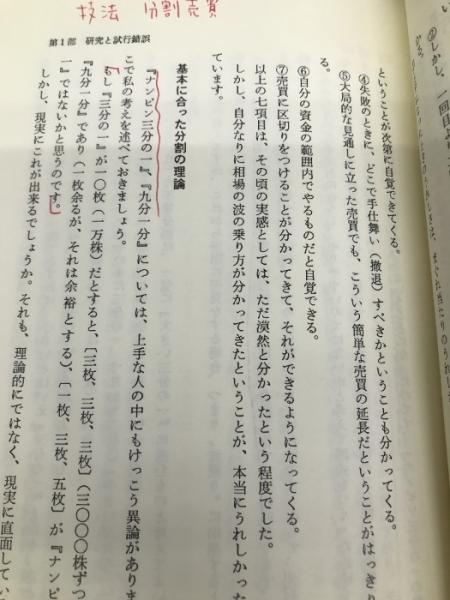 技法 分割売買
第1部 研究と試行錯誤
ということが次第に自覚できてくる。
④失敗のときに、どこで手仕舞い（撤退）すべきかということも分かってくる。
⑤大局的な見通しに立った売買でも、こういう簡単な売買の延長だということがはっきり
る。
⑥自分の資金の範囲内でやるものだと自覚できる。
⑦売買に区切りをつけることが分かってきて、それができるようになってくる。
以上の七項目は、その頃の実感としては、ただ漠然と分かったという程度でした。
しかし、自分なりに相場の波の乗り方が分かってきたということが、本当にうれしかった
ています。
基本に合った分割の理論
『ナンピン三分の一』、『九分一分』については、上手な人の中にもけっこう異論がありま
こで私の考えを述べておきましょう。
もし『三分の一』が一〇枚（一万株）だとすると、［三枚、三枚、三枚］（三〇〇〇株ずつ
『九分一分』であり（一枚余るが、それは余裕とする）、［一枚、三枚、五枚］が『ナンピ
一』ではないかと思うのです。
しかし、現実にこれが出来るでしょうか。それも、理論的にではなく、現実に直面してい